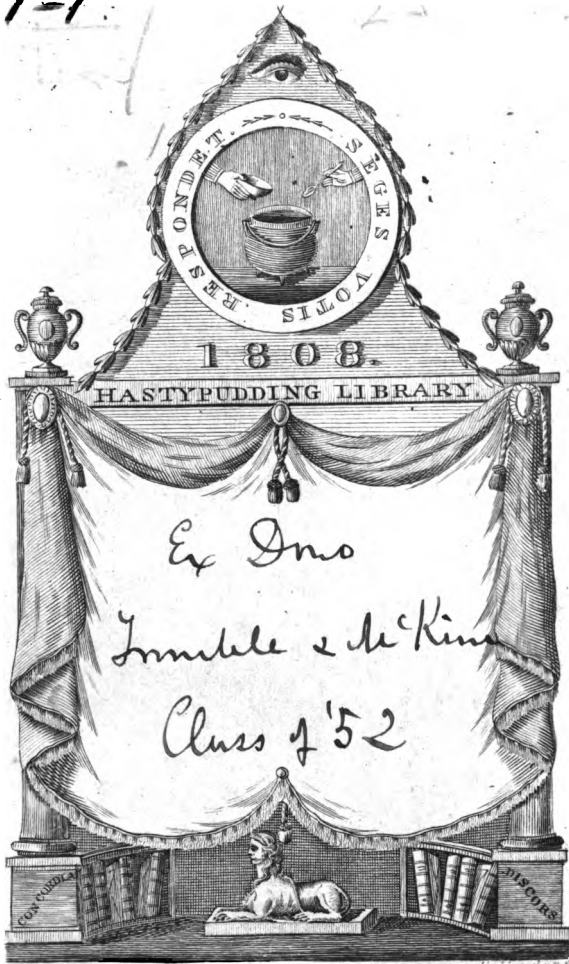 SEGES VOTIS RESPONDET.
1808.
HASTYPUDDING LIBRARY
Ex Dono
& McKim
Class of '52
CONCORDIA
DISCORS.